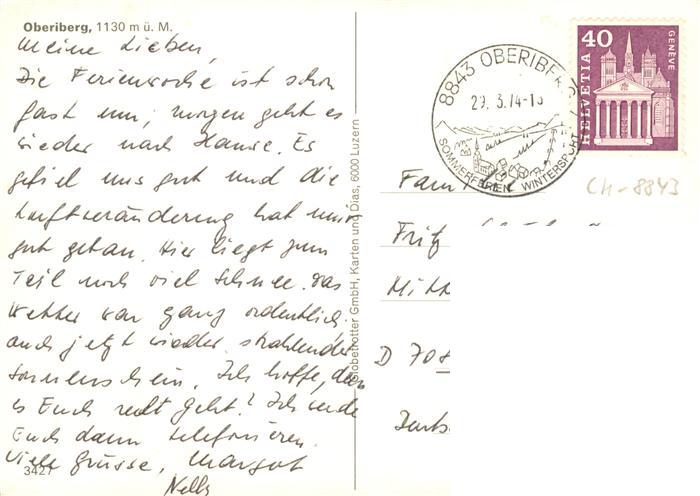 Oberiberg, 1130 m ü. M.
Meine Lieben,
Die Ferienwoche ist schon
fast um, morgen geht es
wieder nach Hause. Es
gefiel uns gut und die
Luftveränderung hat uns
gut getan. Hier liegt zum
Teil noch viel Schnee. Das
Wetter war ganz ordentlich
auch jetzt wieder strahlender
Sonnenschein. Ich hoffe, dass
es Euch recht geht? Ich werde
Euch dann telefonieren.
Viele Grüsse, Margot
Nelly
3427
Globetrotter GmbH, Karten und Dias, 6000 Luzern
8843 OBERIBERG
29.3.74-13
SOMMERFERIEN WINTERSPORT
40
HELVETIA
GENÈVE
CH-8843
Fam
Fritz
Mitt
D 708
Deuts